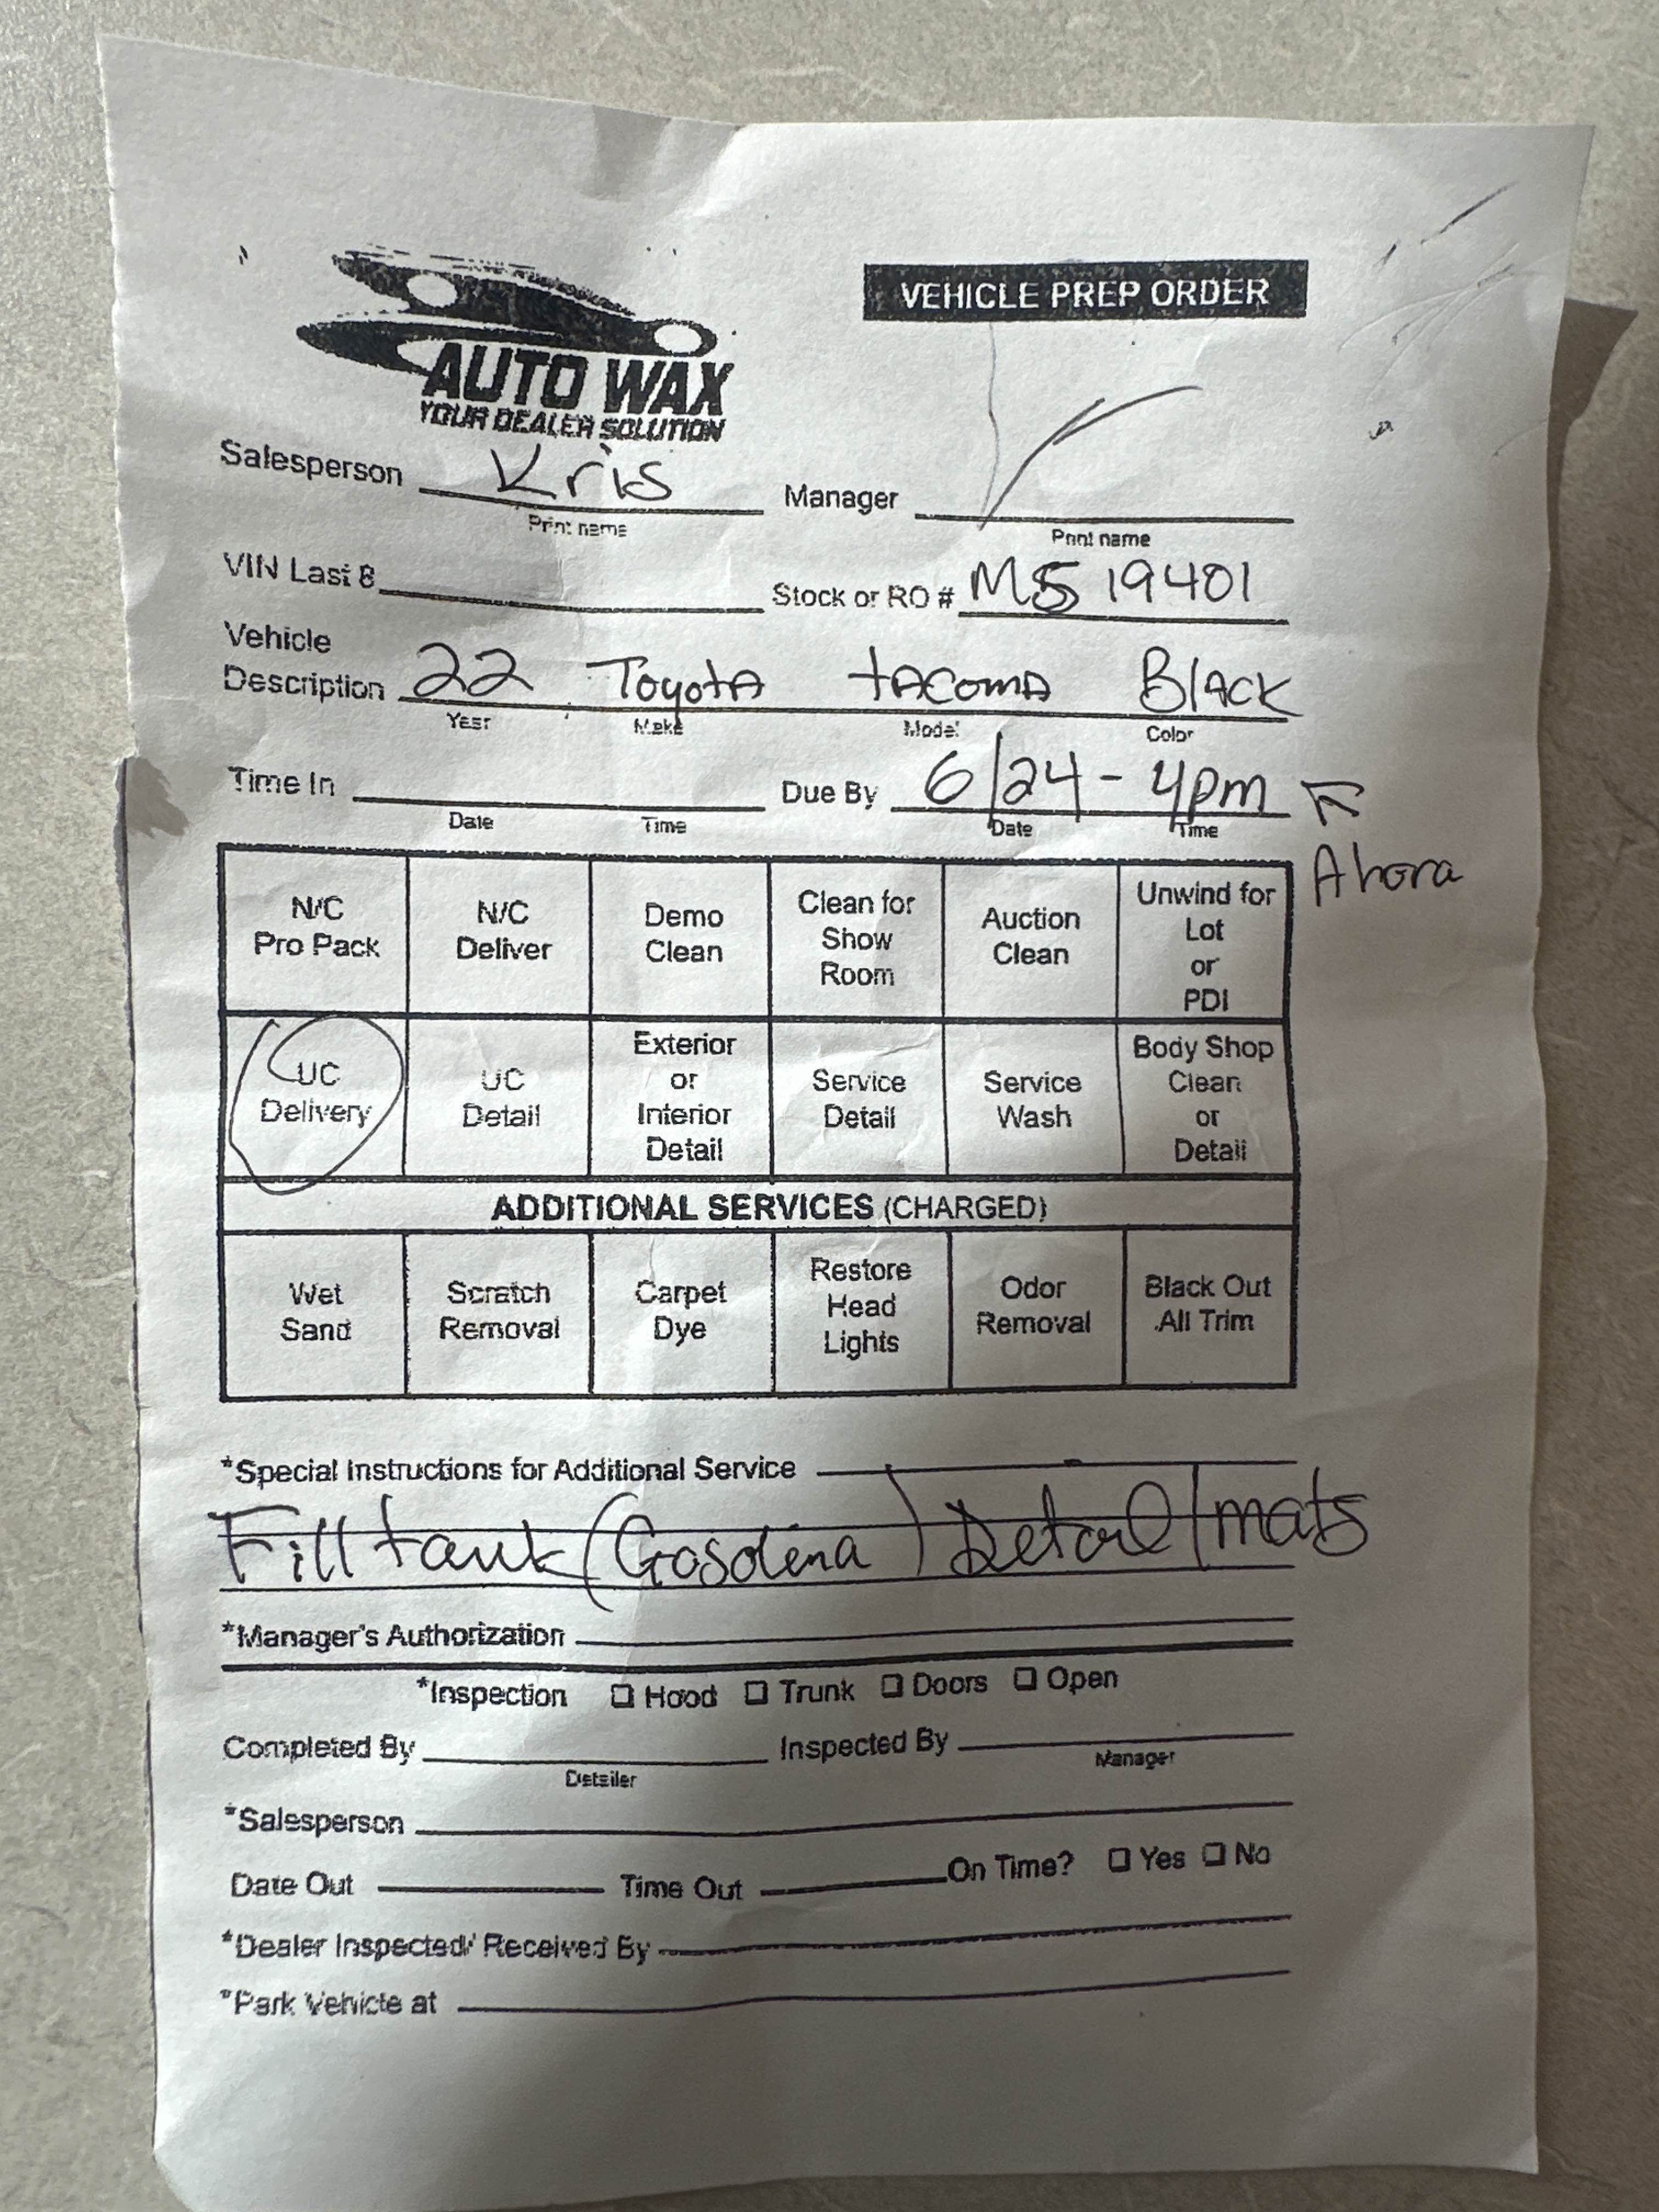 AUTO WAX
YOUR DEALER SOLUTION
VEHICLE PREP ORDER
Salesperson Kris Manager
Print name Print name
VIN Last 8 Stock or RO # M519401
Vehicle
Description 22 Toyota tacoma Black
Year Make Model Color
Time In Due By 6/24 - 4pm
Date Time Date Time
Ahora
N/C Pro Pack
N/C Deliver
Demo Clean
Clean for Show Room
Auction Clean
Unwind for Lot or PDI
UC Delivery
UC Detail
Exterior or Interior Detail
Service Detail
Service Wash
Body Shop Clean or Detail
ADDITIONAL SERVICES (CHARGED)
Wet Sand
Scratch Removal
Carpet Dye
Restore Head Lights
Odor Removal
Black Out All Trim
*Special Instructions for Additional Service
Fill tank (Gasolina) Detail/mats
*Manager's Authorization
*Inspection ❑ Hood ❑ Trunk ❑ Doors ❑ Open
Completed By Inspected By
Detailer Manager
*Salesperson
Date Out Time Out On Time? ❑ Yes ❑ No
*Dealer Inspected/ Received By
*Park Vehicle at